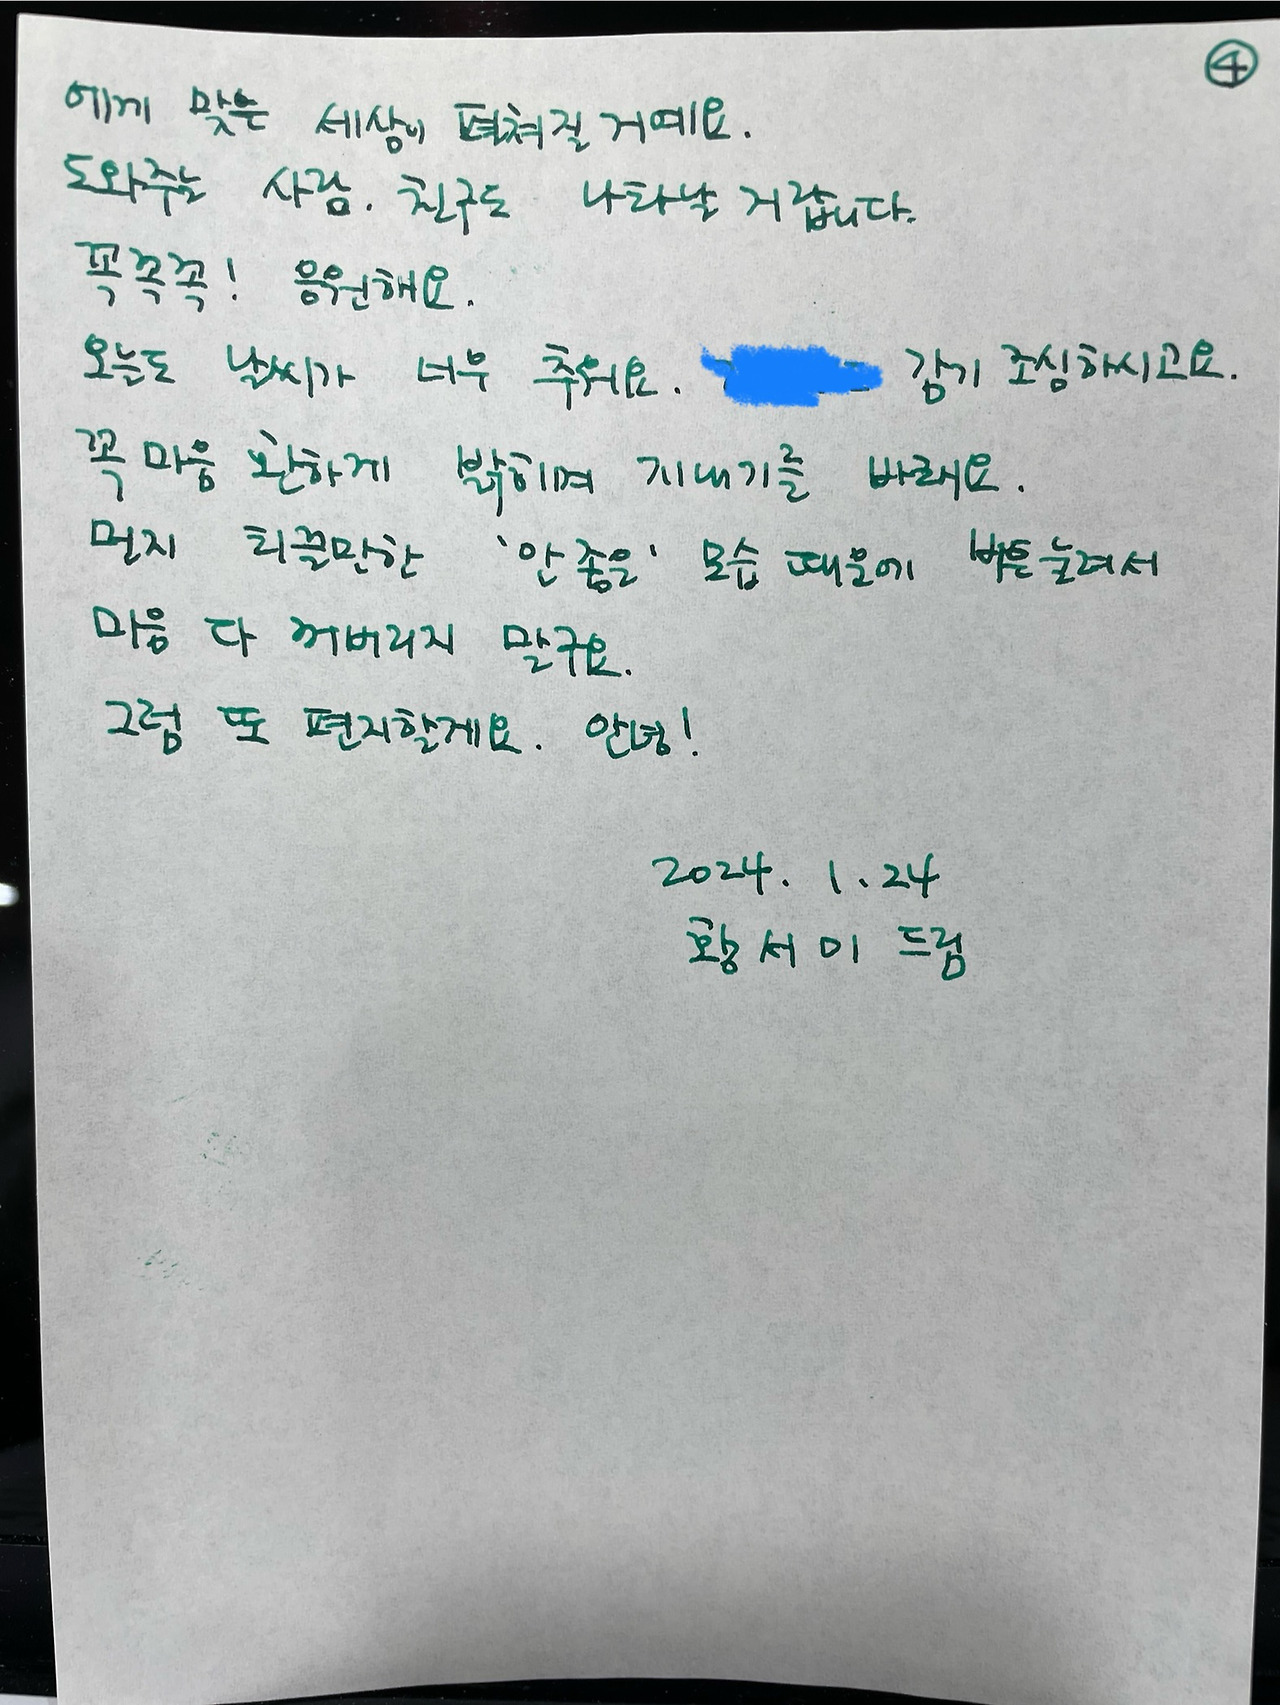 ④
에게 맞는 세상이 펴쳐질 거예요.
도와주는 사람. 친구도 나타날 거랍니다.
꼭꼭꼭! 응원해요.
오늘도 날씨가 너무 추워요. 감기 조심하시고요.
꼭 마음 환하게 밝히며 지내기를 바래요.
먼지 티끌만한 '안 좋은' 모습 때문에 버튼 눌려서
마음 다 꺼버리지 말구요.
그럼 또 편지할게요. 안녕!
2024. 1. 24
황서미 드림